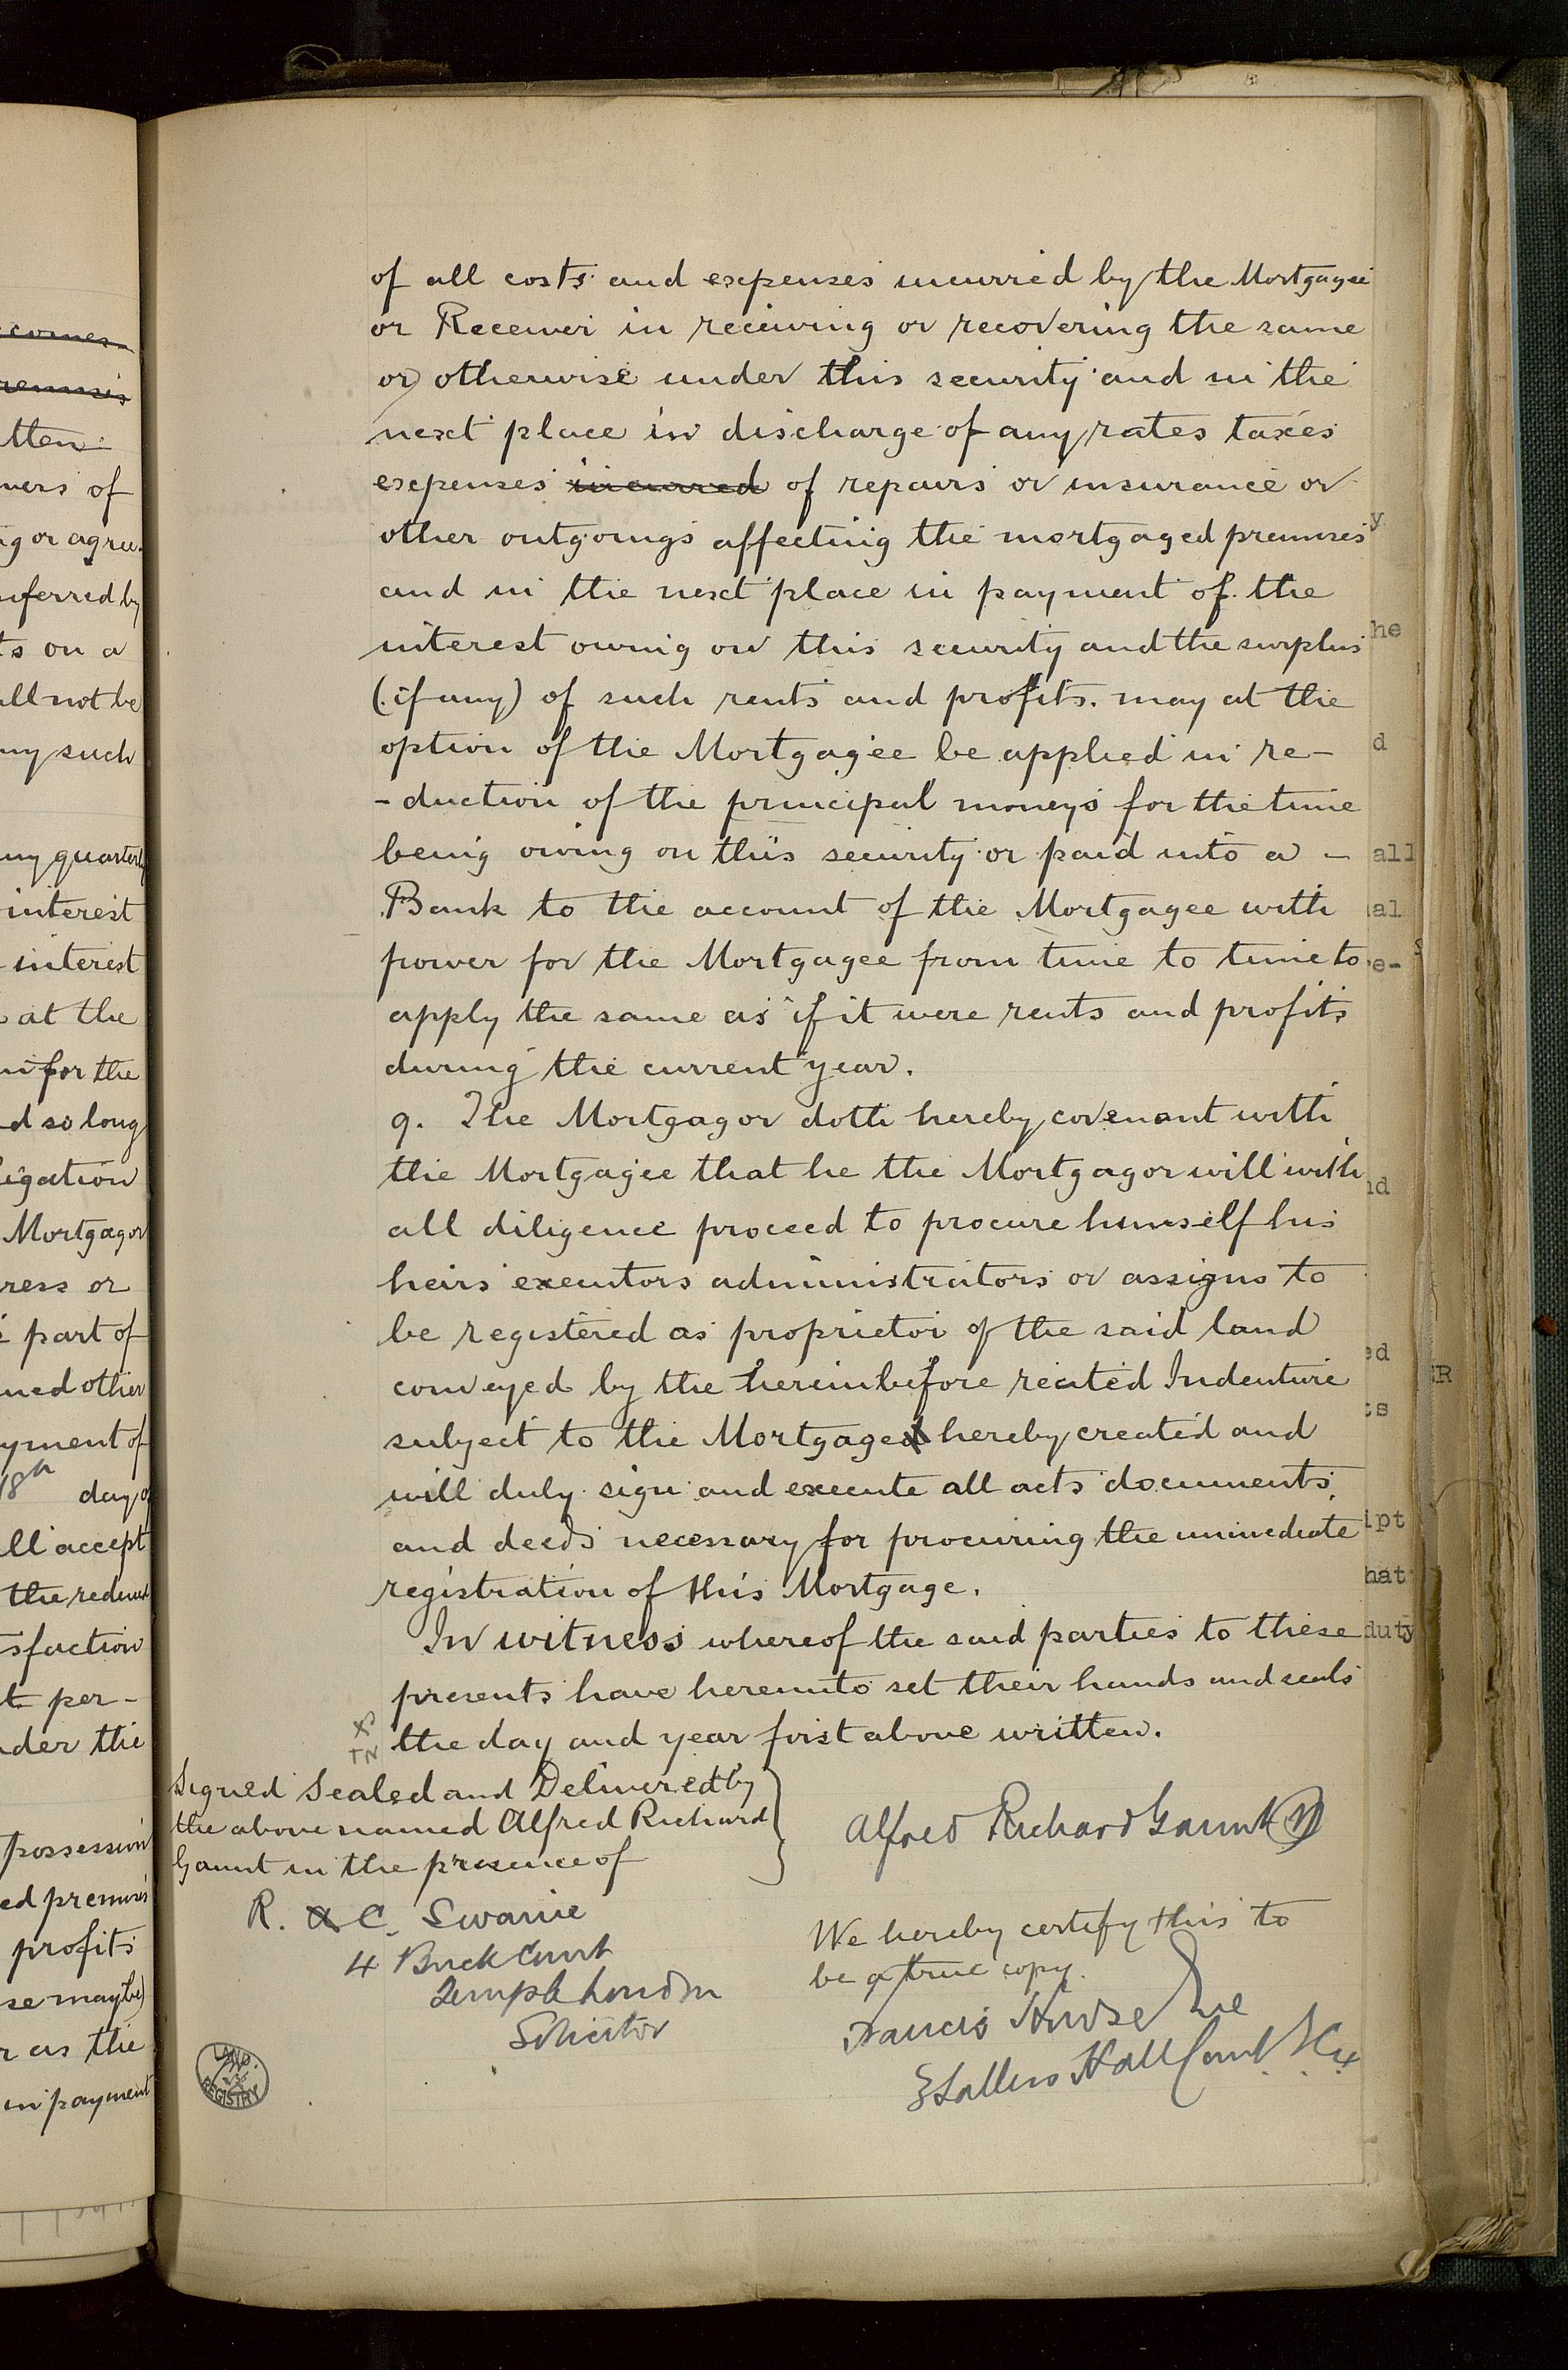 of all costs and expenses incurred by the Mortgagee
or Receiver in receiving or recovering the same
or otherwise under this security and in the
next place in discharge of any rates taxes
expenses incurred of repairs or insurance or
other outgoings affecting the mortgaged premises
and in the next place in payment of the
interest owing on this security and the surplus
(if any) of such rents and profits may at the
option of the Mortgagee be applied in re-
-duction of the principal moneys for the time
being owing on this security or paid into a -
Bank to the account of the Mortgagee with
power for the Mortgagee from time to time to
apply the same as if it were rents and profits
during the current year.
9. The Mortgagor doth hereby covenant with
the Mortgagee that he the Mortgagor will with
all diligence proceed to procure himself his
heirs executors administrators or assigns to
be registered as proprietor of the said land
conveyed by the hereinbefore recited Indenture
subject to the Mortgage hereby created and
will duly sign and execute all acts documents
and deeds necessary for procuring the immediate
registration of this Mortgage.
In witness whereof the said parties to these
presents have hereunto set their hands and seals
the day and year first above written.
Signed Sealed and Delivered by
the above named Alfred Richard
Gaunt in the presence of
Alfred Richard Gaunt
R. C. Swaine
4 Brick Court
Temple London
Solicitor
We hereby certify this to
be a true copy.
Francis Howse
Hall Court
LAND REGISTRY
tten
ners of
ng or agree
nferred by
ts on a
all not be
ny such
ny quarterly
interest
interest
at the
for the
d so long
ligation
Mortgagor
ress or
part of
med other
yment of
18th day of
ll accept
the
sfaction
t per-
nder the
possession
ed premises
profits
se may be)
r as the
in payment
y
he
d
all
al
e-
nd
ed
ts
ipt
hat
duty
ER